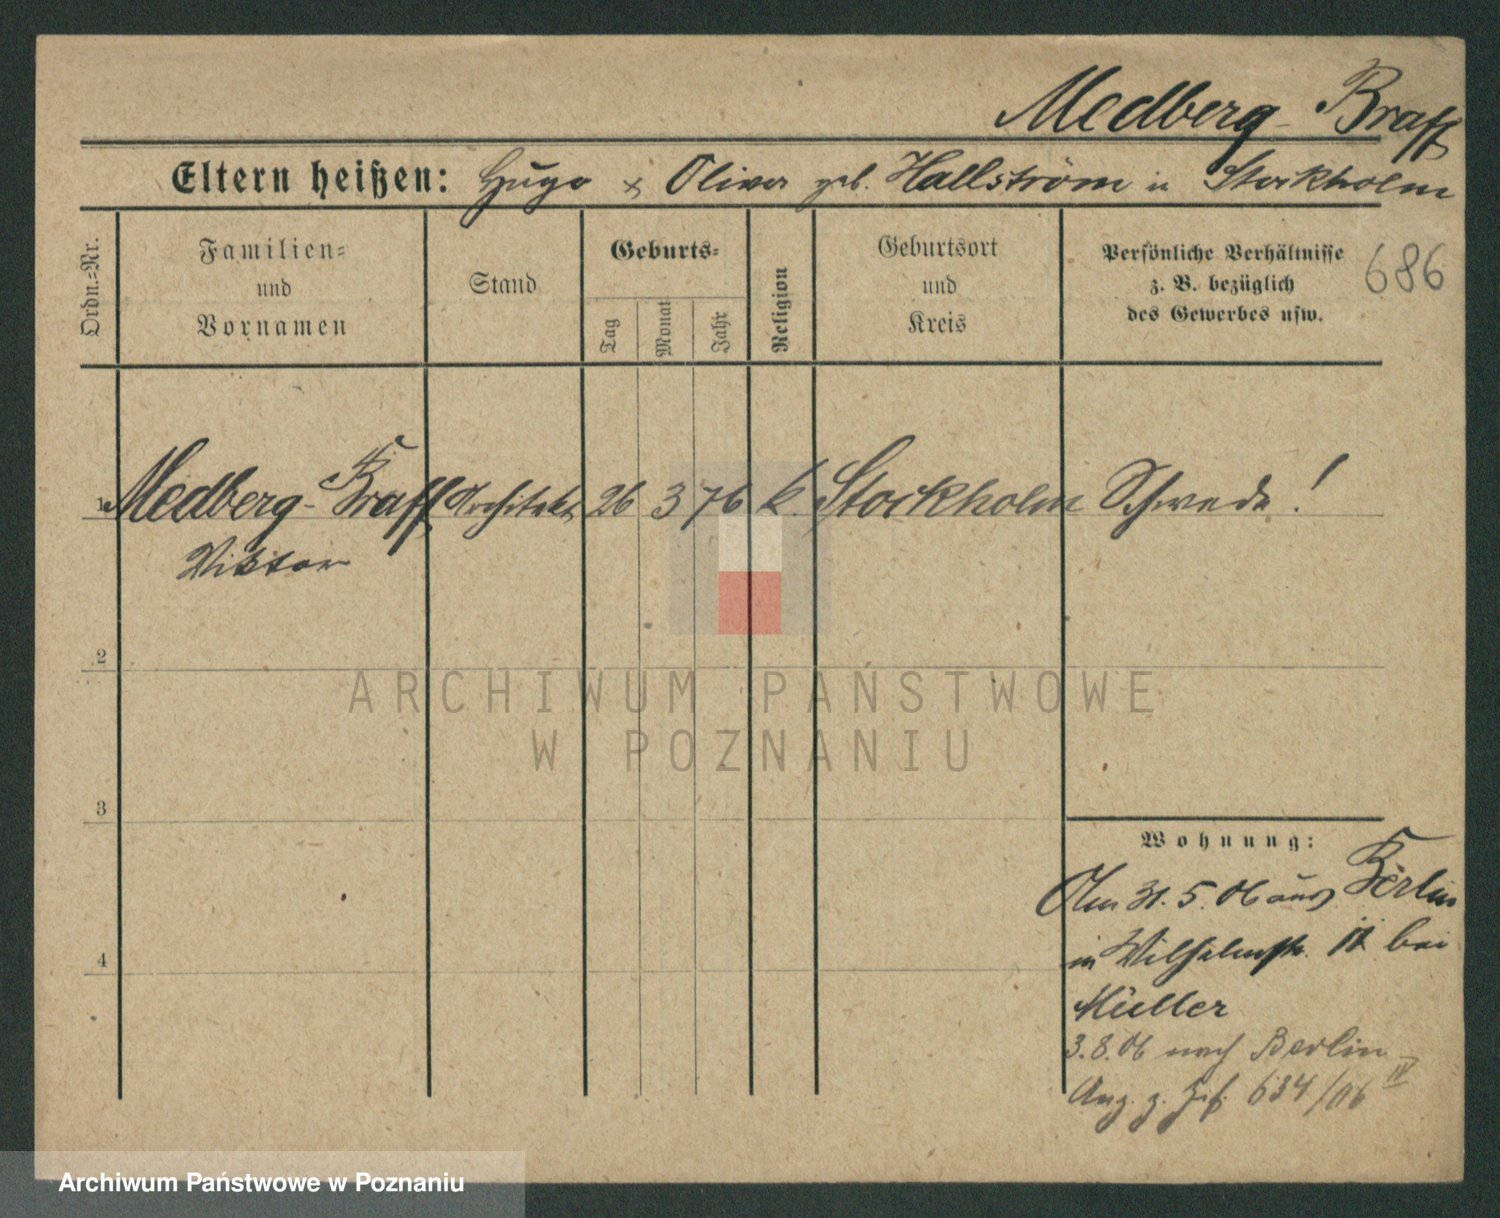 Medberg-Braff
Eltern heißen: Hugo & Oliva geb. Hallström in Stockholm
Ordn.=Nr.
Familien=
und
Vornamen
Stand
Geburts=
Tag
Monat
Jahr
Religion
Geburtsort
und
Kreis
Persönliche Verhältnisse
z. B. bezüglich
des Gewerbes usw.
686
1 Medberg-Braff Architekt 26 3 76 k. Stockholm Schwede!
Viktor
2
ARCHIWUM PAŃSTWOWE
W POZNANIU
3
Wohnung:
Am 31.5.06 aus Berlin
in Wilhelmstr. bei
4
Müller
3.8.06 nach Berlin
Ang. z. 634/06 IV
Archiwum Państwowe w Poznaniu